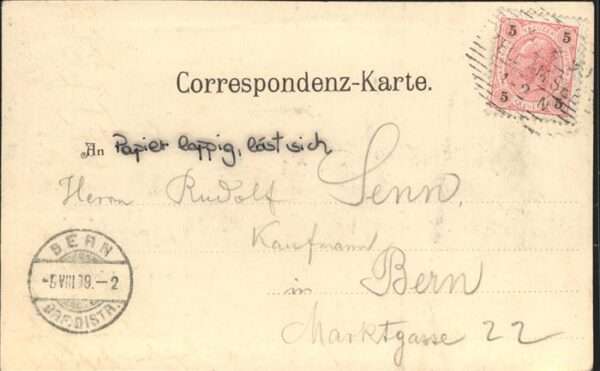 5 5
5 5
Correspondenz-Karte.
An Papier lappig, löst sich
Herrn Rudolf Senn,
Kaufmann
in Bern
Marktgasse 22
BERN
-5 VIII 99.-2
BRF.DISTR.